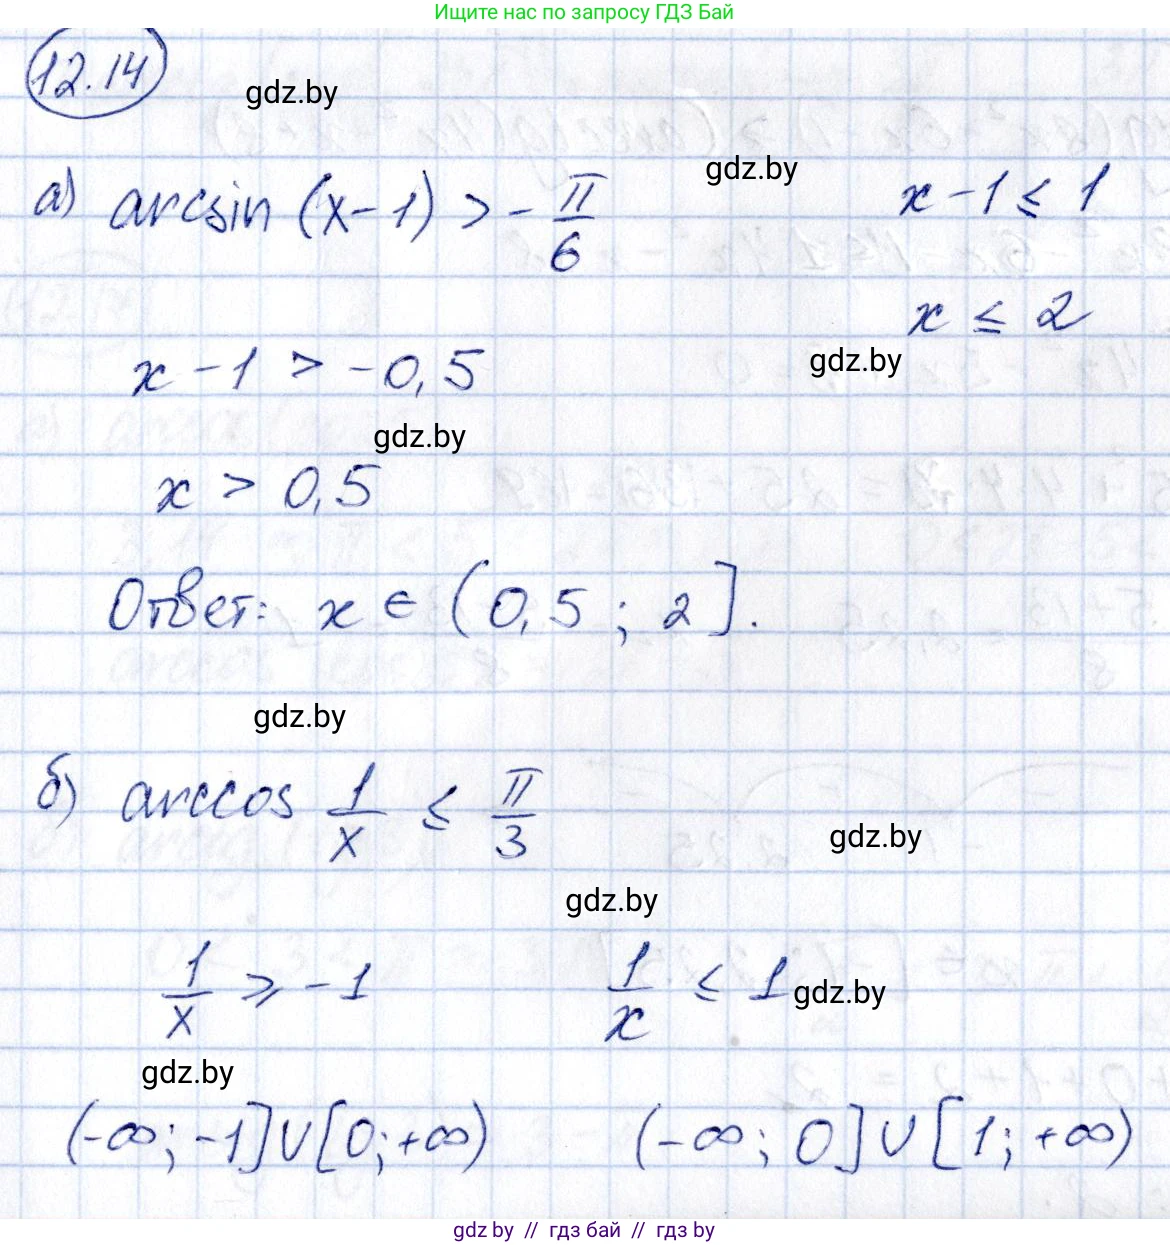 Ищите нас по запросу ГДЗ Бай
12.14
gdz.by
а) arcsin (x-1) > -π/6
gdz.by
x-1 ≤ 1
x ≤ 2
x - 1 > -0,5
gdz.by
gdz.by
x > 0,5
Ответ: x ∈ (0,5 ; 2].
gdz.by
б) arccos 1/x ≤ π/3
gdz.by
gdz.by
1/x ⩾ -1
1/x ≤ 1
gdz.by
gdz.by
(-∞; -1]∪[0;+∞)
(-∞; 0]∪[1; +∞)
gdz by // гдз бай // гдз by